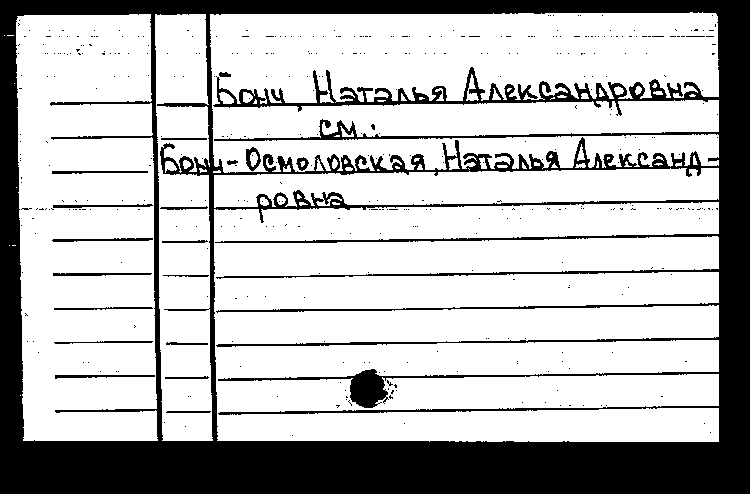 Бонч, Наталья Александровна
см.:
Бонч-Осмоловская, Наталья Александ-
ровна